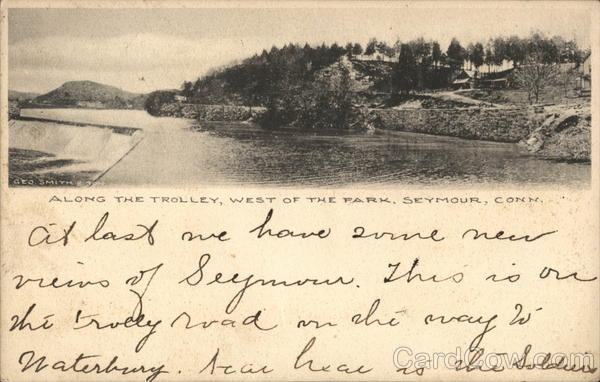 GEO. SMITH
ALONG THE TROLLEY, WEST OF THE PARK, SEYMOUR, CONN.
At last we have some new
views of Seymour. This is on
the trolley road on the way to
Waterbury. Near here is the Soldiers
CardCow.com